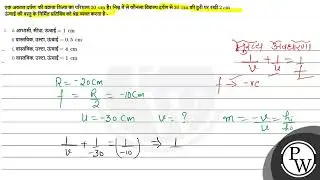 एक अवतल दर्पण की वक्रता त्रिज्या का परिमाण 20 cm है। निम्न में से कौनसा विकल्प दर्पण से 30 cm की दूरी पर रखी 2 cm
ऊंचाई की वस्तु के निर्मित प्रतिबिंब को व्यक्त करता है -
आभासी, सीधा, ऊंचाई = 1 cm
वास्तविक, उल्टा, ऊंचाई = 0.5 cm
वास्तविक, उल्टा, ऊंचाई = 4 cm
वास्तविक, उल्टा, ऊंचाई = 1 cm
मुख्य अवधारणा
1/v + 1/u = 1/f
f → -ve
R = -20 cm
f = R/2 = -10 cm
u = -30 cm v = ?
m = -v/u = hi/ho
1/v + 1/-30 = (1/-10) ⇒ 1
PW